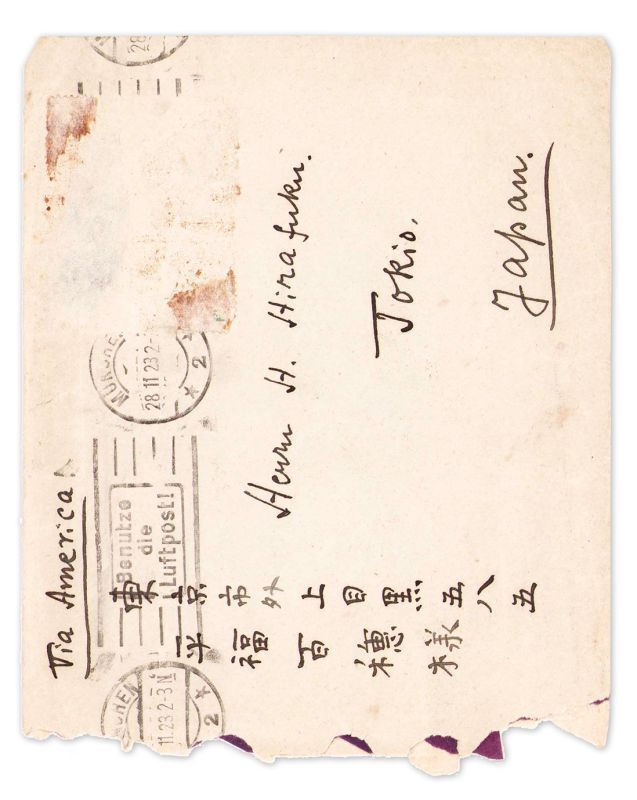 Via America!
Benutze
die
Luftpost!
MÜNCHEN
28 11 23 2-
2
11.23 2-3 N
2
Herrn H. Hirafuku.
Tokio.
Japan.
東京市外上目黒五八五
平福百穗様